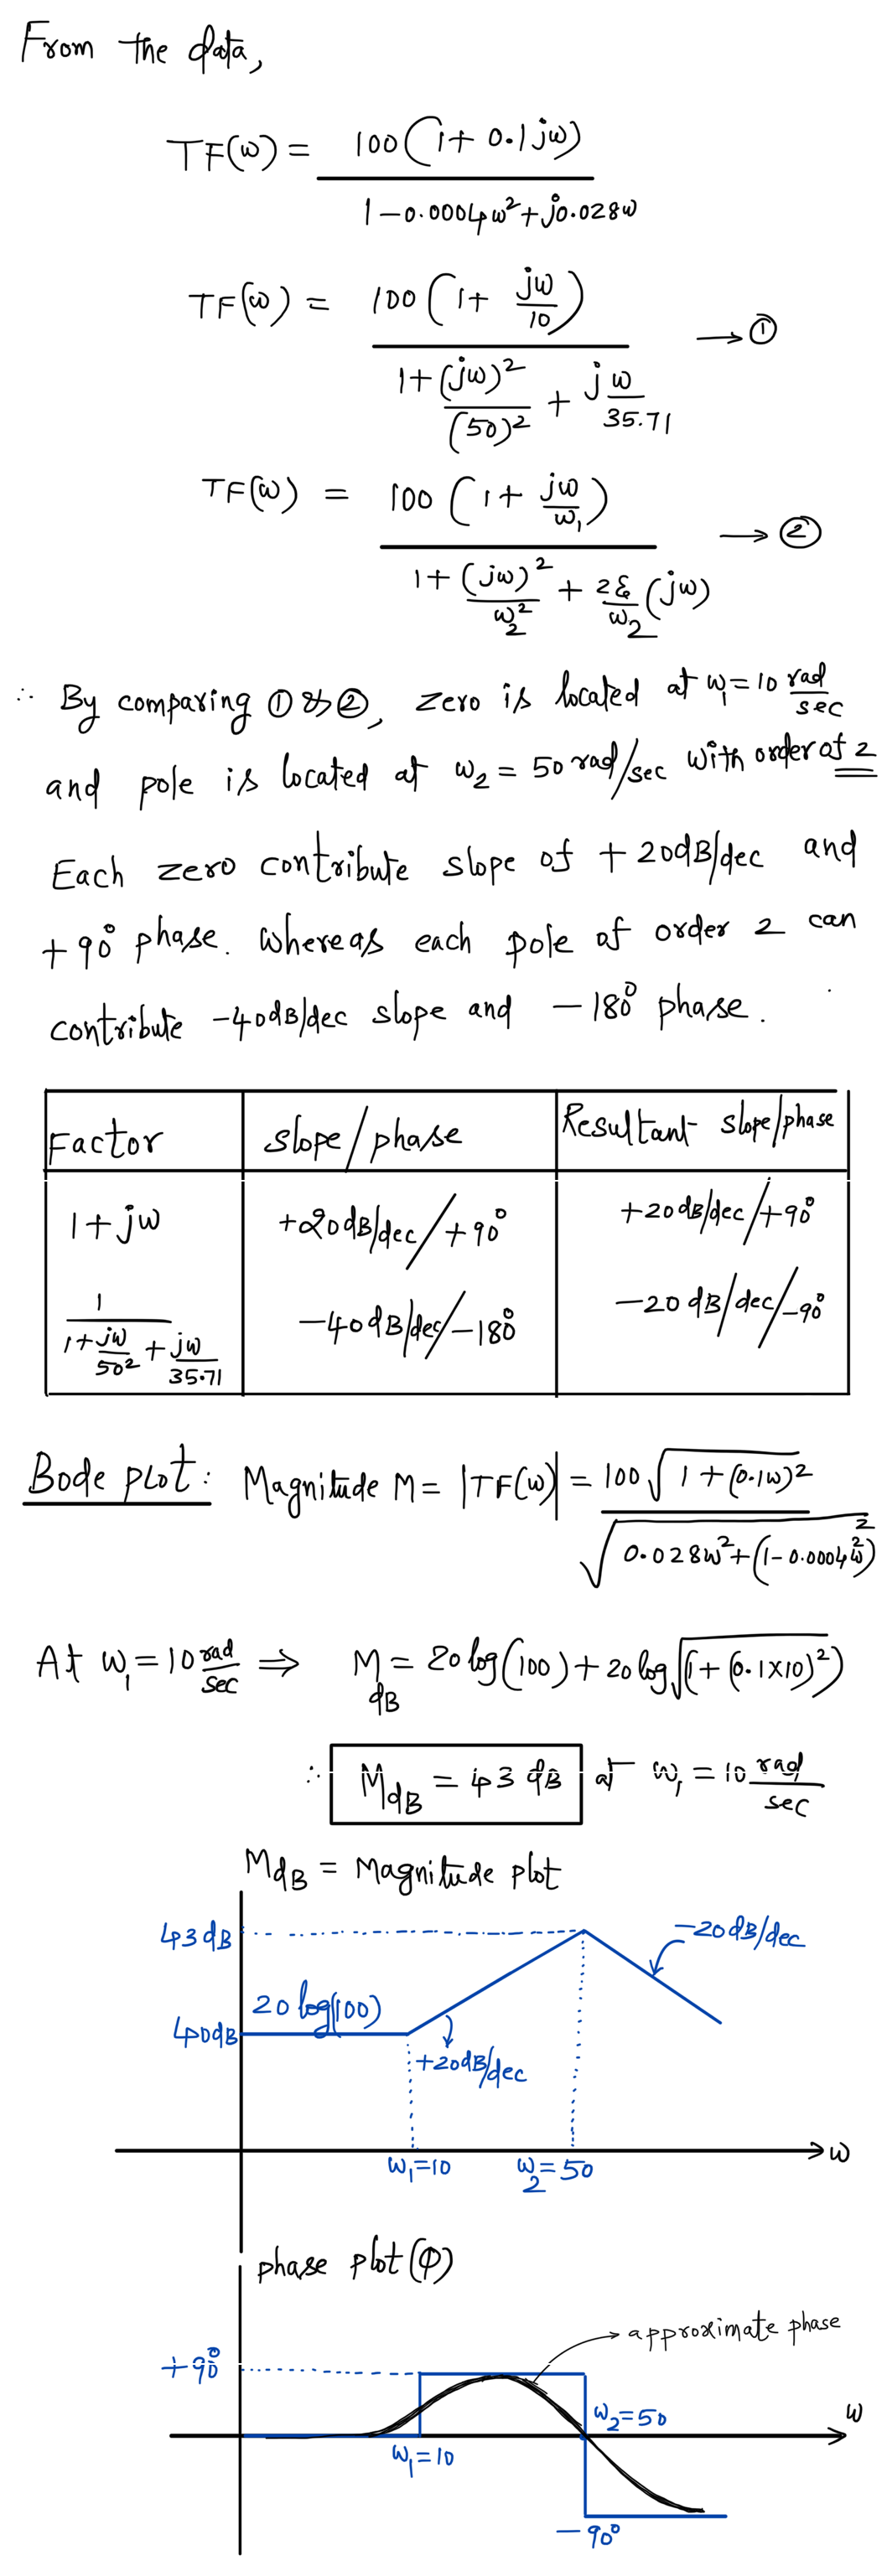 From the data,
TF(ω) = 100(1+ 0.1jω) / 1-0.0004ω²+j0.028ω
TF(ω) = 100(1+ jω/10) / 1+(jω)²/(50)² + jω/35.71 → ①
TF(ω) = 100(1+ jω/ω₁) / 1+(jω)²/ω₂² + 2ξ/ω₂(jω) → ②
∴ By comparing ① & ②, zero is located at ω₁=10 rad/sec
and pole is located at ω₂ = 50 rad/sec with order of 2
Each zero contribute slope of +20dB/dec and
+90° phase. whereas each pole of order 2 can
contribute -40dB/dec slope and -180° phase.
Factor slope/phase Resultant slope/phase
1+jω +20dB/dec/+90° +20dB/dec/+90°
1/1+jω/50²+jω/35.71 -40dB/dec/-180° -20dB/dec/-90°
Bode plot: Magnitude M= |TF(ω)| = 100√1+(0.1ω)² / √0.028ω²+(1-0.0004ω²)²
At ω₁=10 rad/sec ⇒ M dB = 20log(100)+20log√(1+(0.1×10)²)
∴ MdB = 43 dB at ω₁=10 rad/sec
MdB = Magnitude plot
43dB
-20dB/dec
20log(100)
40dB
+20dB/dec
ω₁=10 ω₂=50 ω
phase plot(φ)
approximate phase
+90°
ω₂=50 ω
ω₁=10
-90°